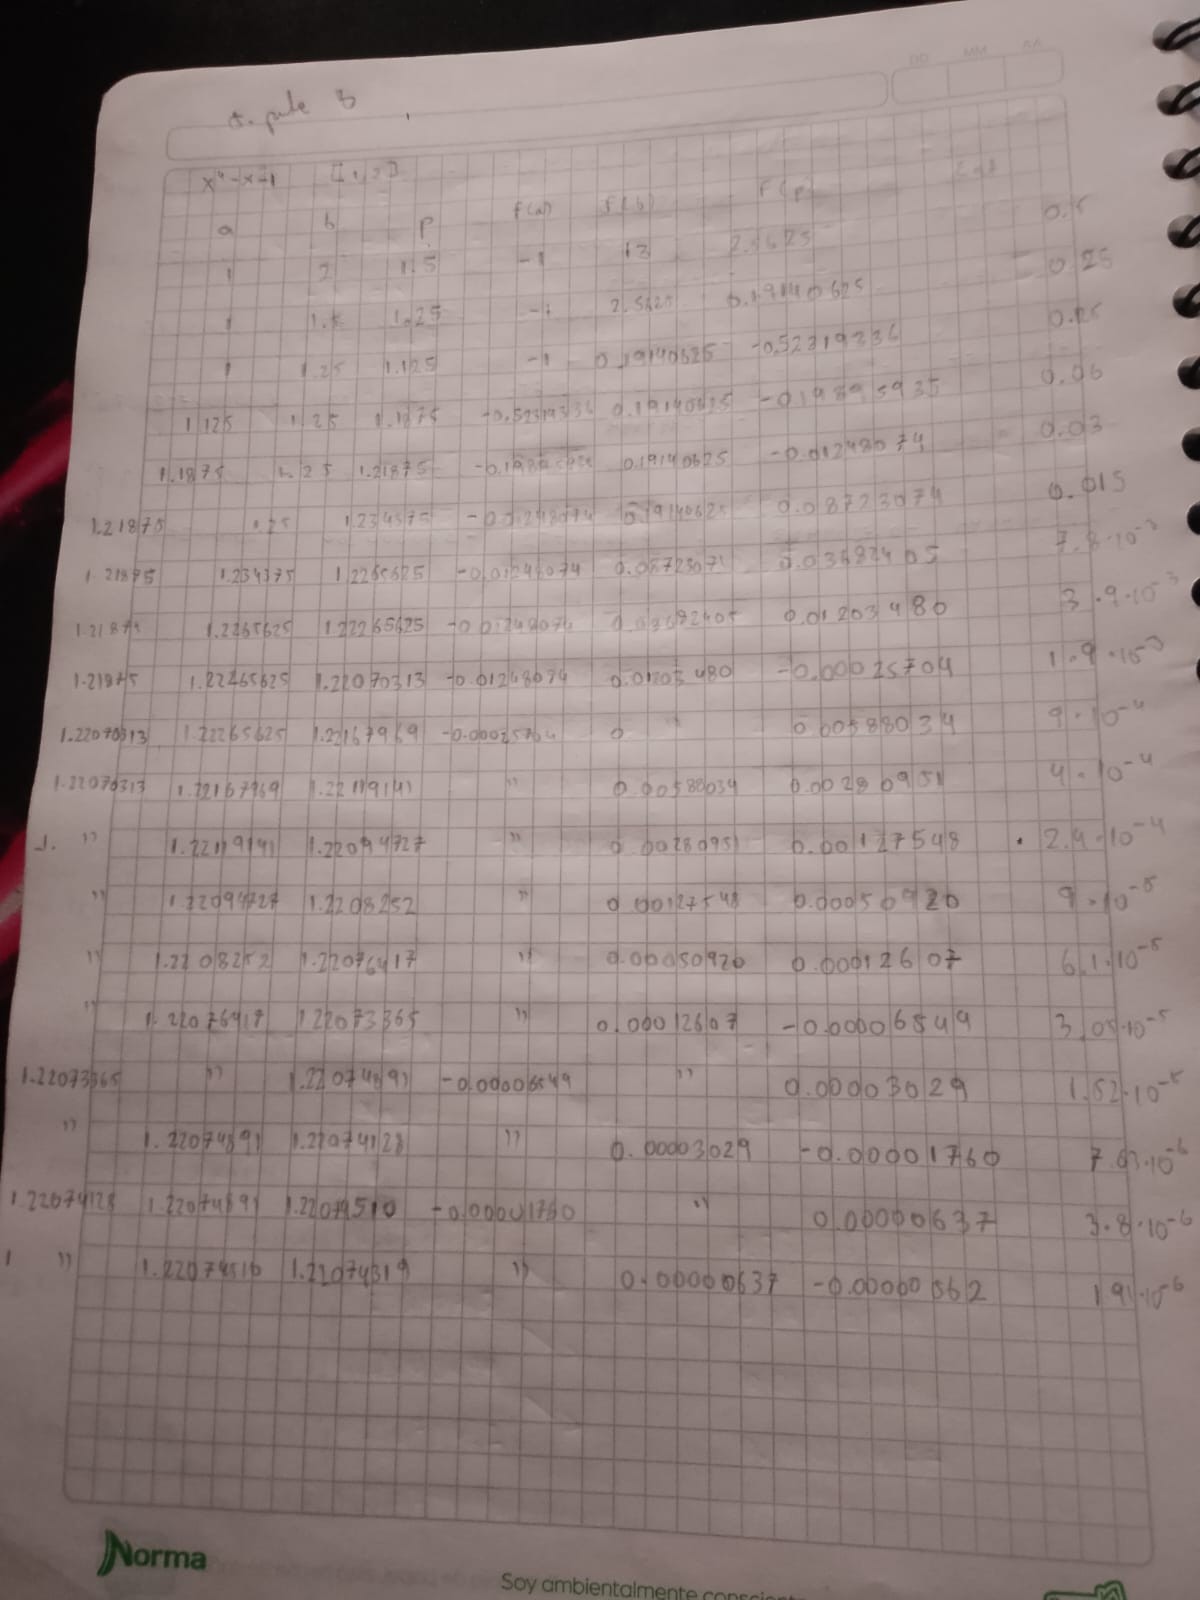 DD MM AA
5. parte 3
x⁴-x-1 [1,2]
a b p f(a) f(b) f(p)
1 2 1.5 -1 13 2.5625 0.5
1 1.5 1.25 -1 2.5625 0.19140625 0.25
1 1.25 1.125 -1 0.19140625 -0.52319336
1.125 1.25 1.1875 -0.52319336 0.19140625 -0.19895935 0.06
1.1875 1.25 1.21875 0.19140625 -0.01248074 0.03
1.21875 1.25 1.234375 -0.01248074 0.19140625 0.08723074 0.015
1.21875 1.234375 1.2265625 -0.01248074 0.08723074 0.03682405 7.8·10⁻³
1.21875 1.2265625 1.22265625 -0.01248074 0.03682405 0.01203480 3.9·10⁻³
1.21875 1.22265625 1.22070313 -0.01248074 0.01203480 -0.00025704 1.9·10⁻³
1.22070313 1.22265625 1.22167969 -0.00025704 0 " 0.00588034 9·10⁻⁴
1.22070313 1.22167969 1.22119141 " 0.00588034 0.00280951 4·10⁻⁴
1. " 1.22119141 1.22094727 " 0.00280951 0.00127548 2.4·10⁻⁴
" 1.22094727 1.2208252 " 0.00127548 0.00050920 9·10⁻⁵
" 1.2208252 1.22076417 " 0.00050920 0.00012607 6.1·10⁻⁵
" 1.22076417 1.22073365 " 0.00012607 -0.00006549 3.05·10⁻⁵
1.22073365 " 1.22074891 -0.00006549 " 0.00003029 1.52·10⁻⁵
" 1.22074891 1.22074128 " 0.00003029 -0.00001760 7.63·10⁻⁶
1.22074128 1.22074891 1.22074510 -0.00001760 " 0.00000637 3.8·10⁻⁶
1 " 1.22074510 1.22074319 " 0.00000637 -0.00000562 1.91·10⁻⁶
Norma
Soy ambientalmente